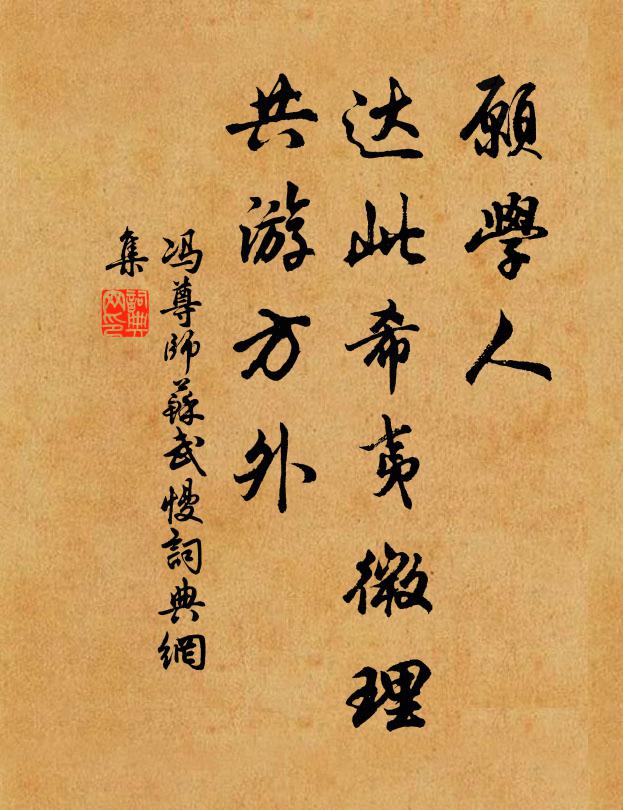 願學人
达此希夷微理
共游方外
冯尊師蘇武慢詞典網
集
詞典
网印